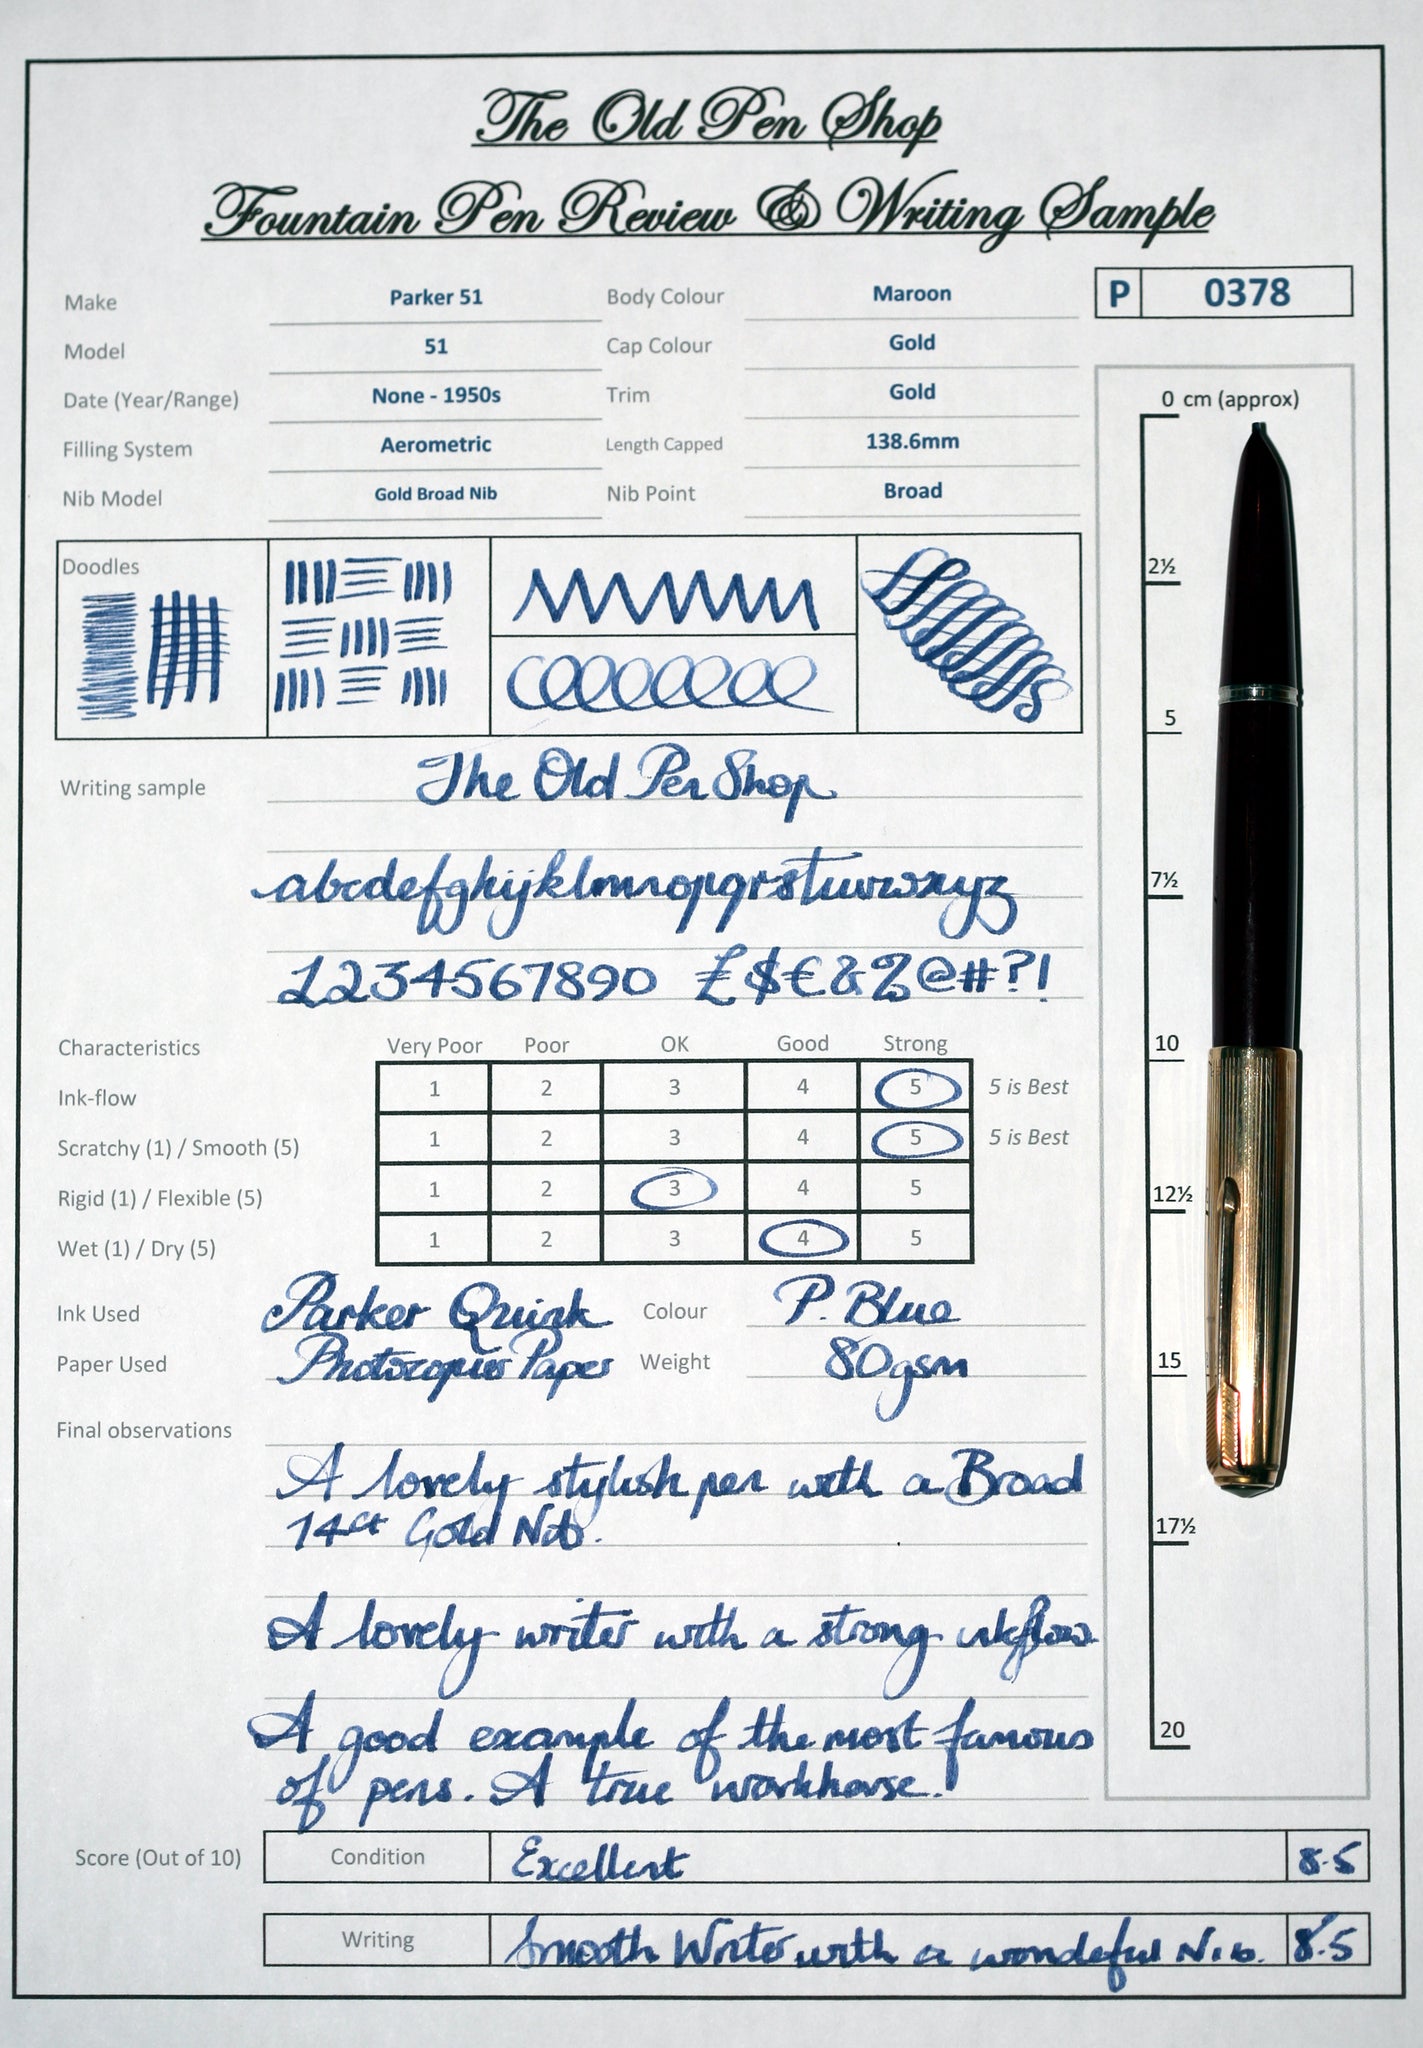 The Old Pen Shop
Fountain Pen Review & Writing Sample
Make Parker 51 Body Colour Maroon P 0378
Model 51 Cap Colour Gold
Date (Year/Range) None - 1950s Trim Gold
Filling System Aerometric Length Capped 138.6mm
Nib Model Gold Broad Nib Nib Point Broad
0 cm (approx)
2½
5
7½
10
12½
15
17½
20
Doodles
Writing sample The Old Pen Shop
abcdefghijklmnopqrstuvwxyz
1234567890 £$€&%@#?!
Characteristics Very Poor Poor OK Good Strong
Ink-flow 1 2 3 4 5 5 is Best
Scratchy (1) / Smooth (5) 1 2 3 4 5 5 is Best
Rigid (1) / Flexible (5) 1 2 3 4 5
Wet (1) / Dry (5) 1 2 3 4 5
Ink Used Parker Quink Colour P. Blue
Paper Used Photocopier Paper Weight 80gsm
Final observations
A lovely stylish pen with a Broad
14ct Gold Nib.
A lovely writer with a strong inkflow
A good example of the most famous
of pens. A true workhorse.
Score (Out of 10) Condition Excellent 8.5
Writing Smooth Writer with a wondeful Nib. 8.5